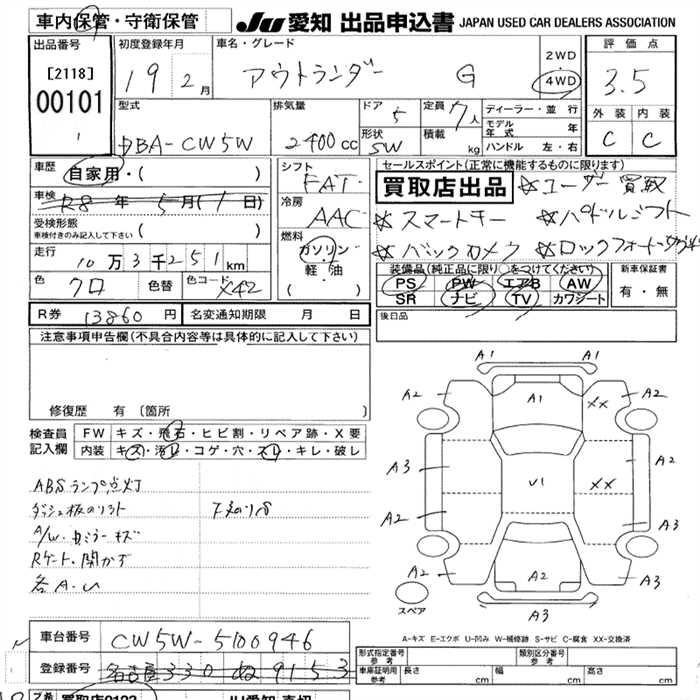 車内保管・守衛保管
JU 愛知 出品申込書 JAPAN USED CAR DEALERS ASSOCIATION
出品番号
[2118]
00101
初度登録年月
19 2月
車名・グレード
アウトランダー G
2WD
4WD
評価点
3.5
外装 内装
C C
型式
DBA-CW5W
排気量
2400cc
ドア
5
形状
SW
定員
7人
積載
kg
ディーラー・並行
モデル年式 年
ハンドル 左・右
車歴
自家用・( )
車検
R8年 5月(1日)
受検形態
車検付きのみ記入して下さい ( )
走行
10万3千251km
色
クロ
色替
色コード
X42
シフト
FAT
冷房
AAC
燃料
ガソリン
軽・油
( ・ )
セールスポイント(正常に機能するものに限ります)
買取店出品 ☆ユーザー買取
☆スマートキー ☆パドルシフト
☆バックカメラ ☆ロックフォード
装備品(純正品に限り○をつけてください)
PS PW エアB AW
SR ナビ TV カワシート
新車保証書
有・無
後日品
R券 13860円 名変通知期限 月 日
注意事項申告欄(不具合内容等は具体的に記入して下さい)
修復歴 有 [箇所 ]
検査員記入欄
FW キズ・飛石・ヒビ割・リペア跡・X要
内装 キズ・汚レ・コゲ・穴・スレ・キレ・破レ
ABSランプ点灯
ダッシュ板のリフト
下夫のリ8
A/W.カミラーキズ
Rゲート.開かず
各A.U
A1 A1
A2 A1 XX A2
A3 A2
U1 XX
A2 A3
A2 A2 A3
A3
スペア
A-キズ E-エクボ U-凹み W-補修跡 S-サビ C-腐食 XX-交換済
車台番号
CW5W-5100946
登録番号
名古屋330ぬ9153
形式指定番号
参考
類別区分番号
参考
車庫証明用
参考
長さ cm
幅 cm
高さ cm
買取店0123
JU愛知